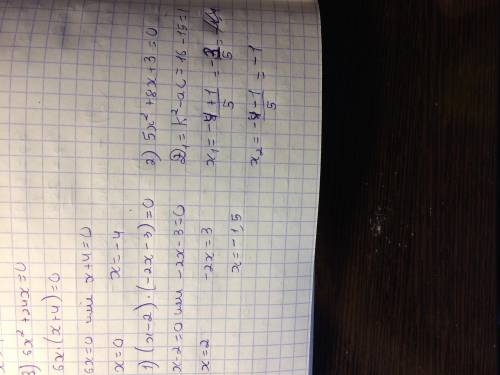 3) 6x² + 24x = 0
6x·(x+4) = 0
6x = 0 или x+4 = 0
x = 0 x = -4
1) (x-2)·(-2x-3) = 0
x-2 = 0 или -2x-3 = 0
x = 2 -2x = 3
x = -1,5
2) 5x² + 8x + 3 = 0
D₁ = k² - ac = 16 - 15 = 1
x₁ = (-4+1)/5 = -3/5
x₂ = (-4-1)/5 = -1